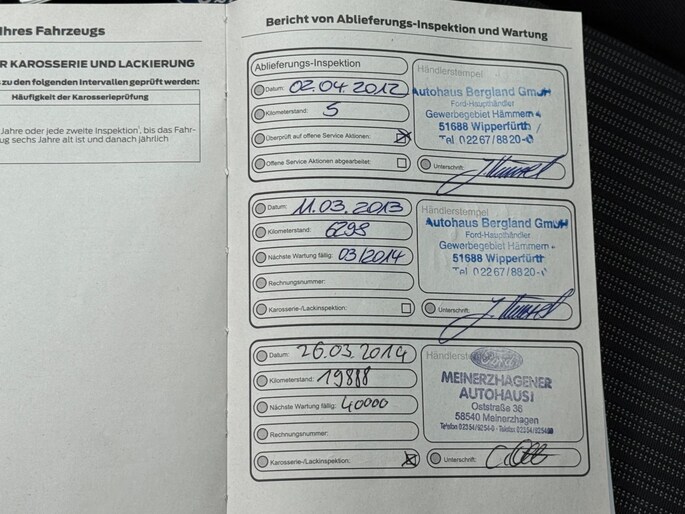 Ihres Fahrzeugs
R KAROSSERIE UND LACKIERUNG
zu den folgenden Intervallen geprüft werden:
Häufigkeit der Karosserieprüfung
Jahre oder jede zweite Inspektion, bis das Fahr-
ug sechs Jahre alt ist und danach jährlich
Bericht von Ablieferungs-Inspektion und Wartung
Ablieferungs-Inspektion
Datum: 02.04.2012
Kilometerstand: 5
Überprüft auf offene Service Aktionen:
Offene Service Aktionen abgearbeitet:
Händlerstempel
Autohaus Bergland GmbH
Ford-Haupthändler
Gewerbegebiet Hämmern
51688 Wipperfürth
Tel 02267/8820-0
Unterschrift:
Datum: 11.03.2013
Kilometerstand: 6293
Nächste Wartung fällig: 03/2014
Rechnungsnummer:
Karosserie-/Lackinspektion:
Händlerstempel
Autohaus Bergland GmbH
Ford-Haupthändler
Gewerbegebiet Hämmern
51688 Wipperfürth
Tel 02267/8820-0
Unterschrift:
Datum: 26.03.2014
Kilometerstand: 19888
Nächste Wartung fällig: 40000
Rechnungsnummer:
Karosserie-/Lackinspektion:
Händlerstempel
MEINERZHAGENER
AUTOHAUS
Oststraße 36
58540 Meinerzhagen
Telefon 02354/9254-0 · Telefax
Unterschrift: